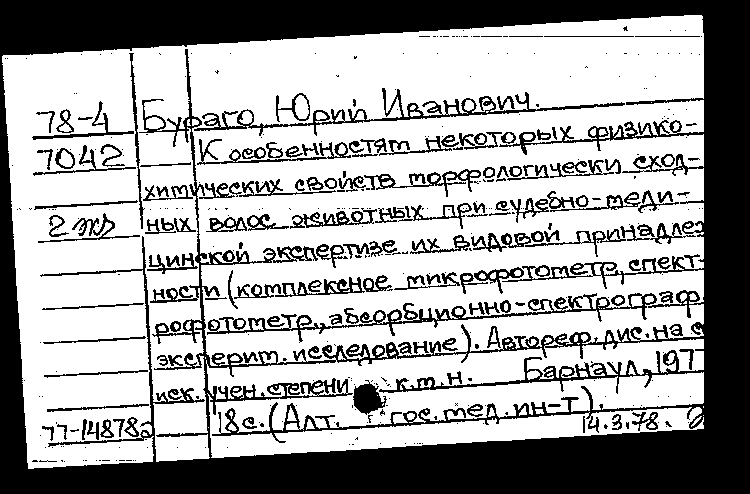 78-4 Бураго, Юрий Иванович.
7042 К особенностям некоторых физико-
химических свойств морфологически сход-
2 экз ных волос животных при судебно-меди-
цинской экспертизе их видовой принадлеж
ности (комплексное микрофотометр., спект-
рофотометр., абсорбционно-спектрограф.
эксперим. исследование). Автореф. дис. на с
иск. учен. степени к.м.н. Барнаул, 197
77-14878а 18 с. (Алт. гос. мед. ин-т).
14.3.78.